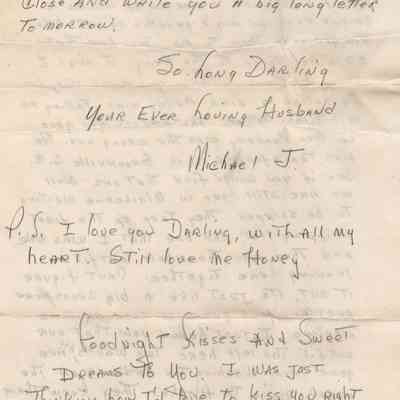 Close And write you A big long letter
Tomorrow.
So Long Darling
Your Ever Loving Husband
Michael J.
P.S. I love you Darling, with all my
heart. Still love me Honey
Goodnight Kisses And Sweet
Dreams To You I was Just
Thinking how I'd love to kiss you right